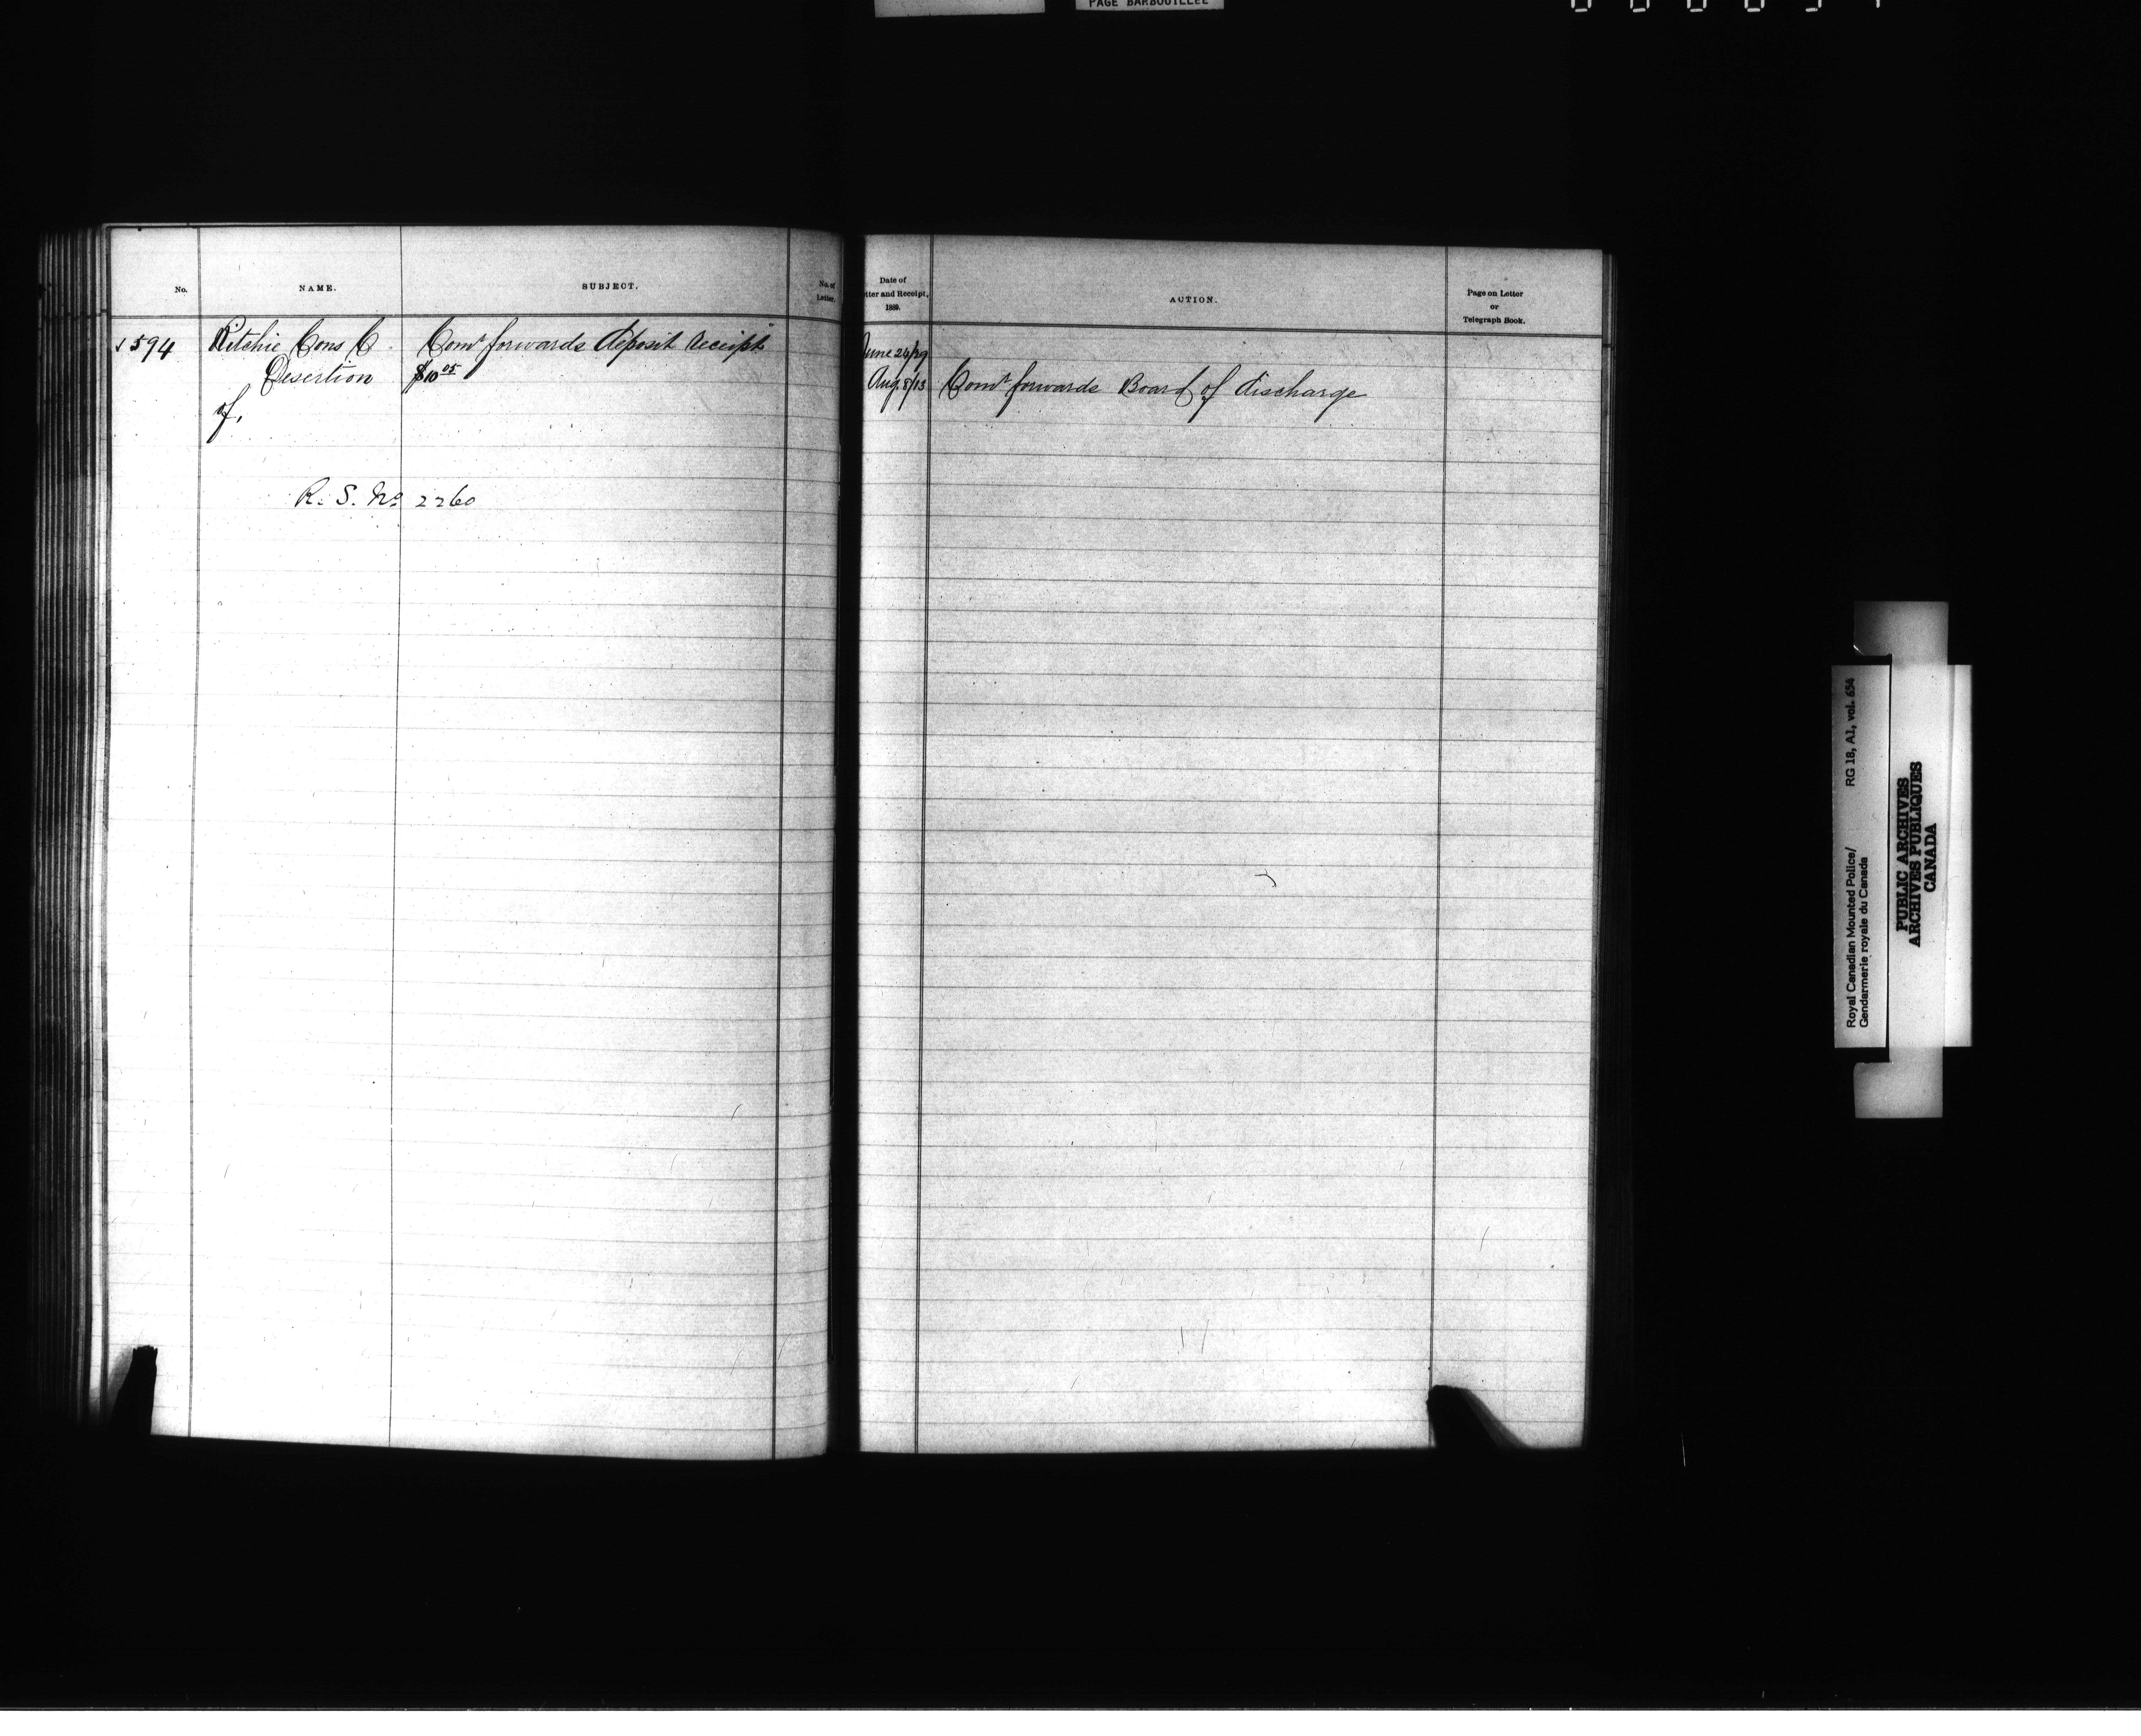 PAGE BARBOUILLEE
No.
NAME.
SUBJECT.
No. of
Letter.
Date of
tter and Receipt,
1889.
ACTION.
Page on Letter
or
Telegraph Book.
594 Ritchie Cons C Comr forwards deposit receipt
Desertion $10 05
of,
R. S. No 2260
June 24/29
Aug. 8/13 Comr forwards Board of discharge
Royal Canadian Mounted Police/ RG 18, A1, vol. 654
Gendarmerie royale du Canada
PUBLIC ARCHIVES
ARCHIVES PUBLIQUES
CANADA